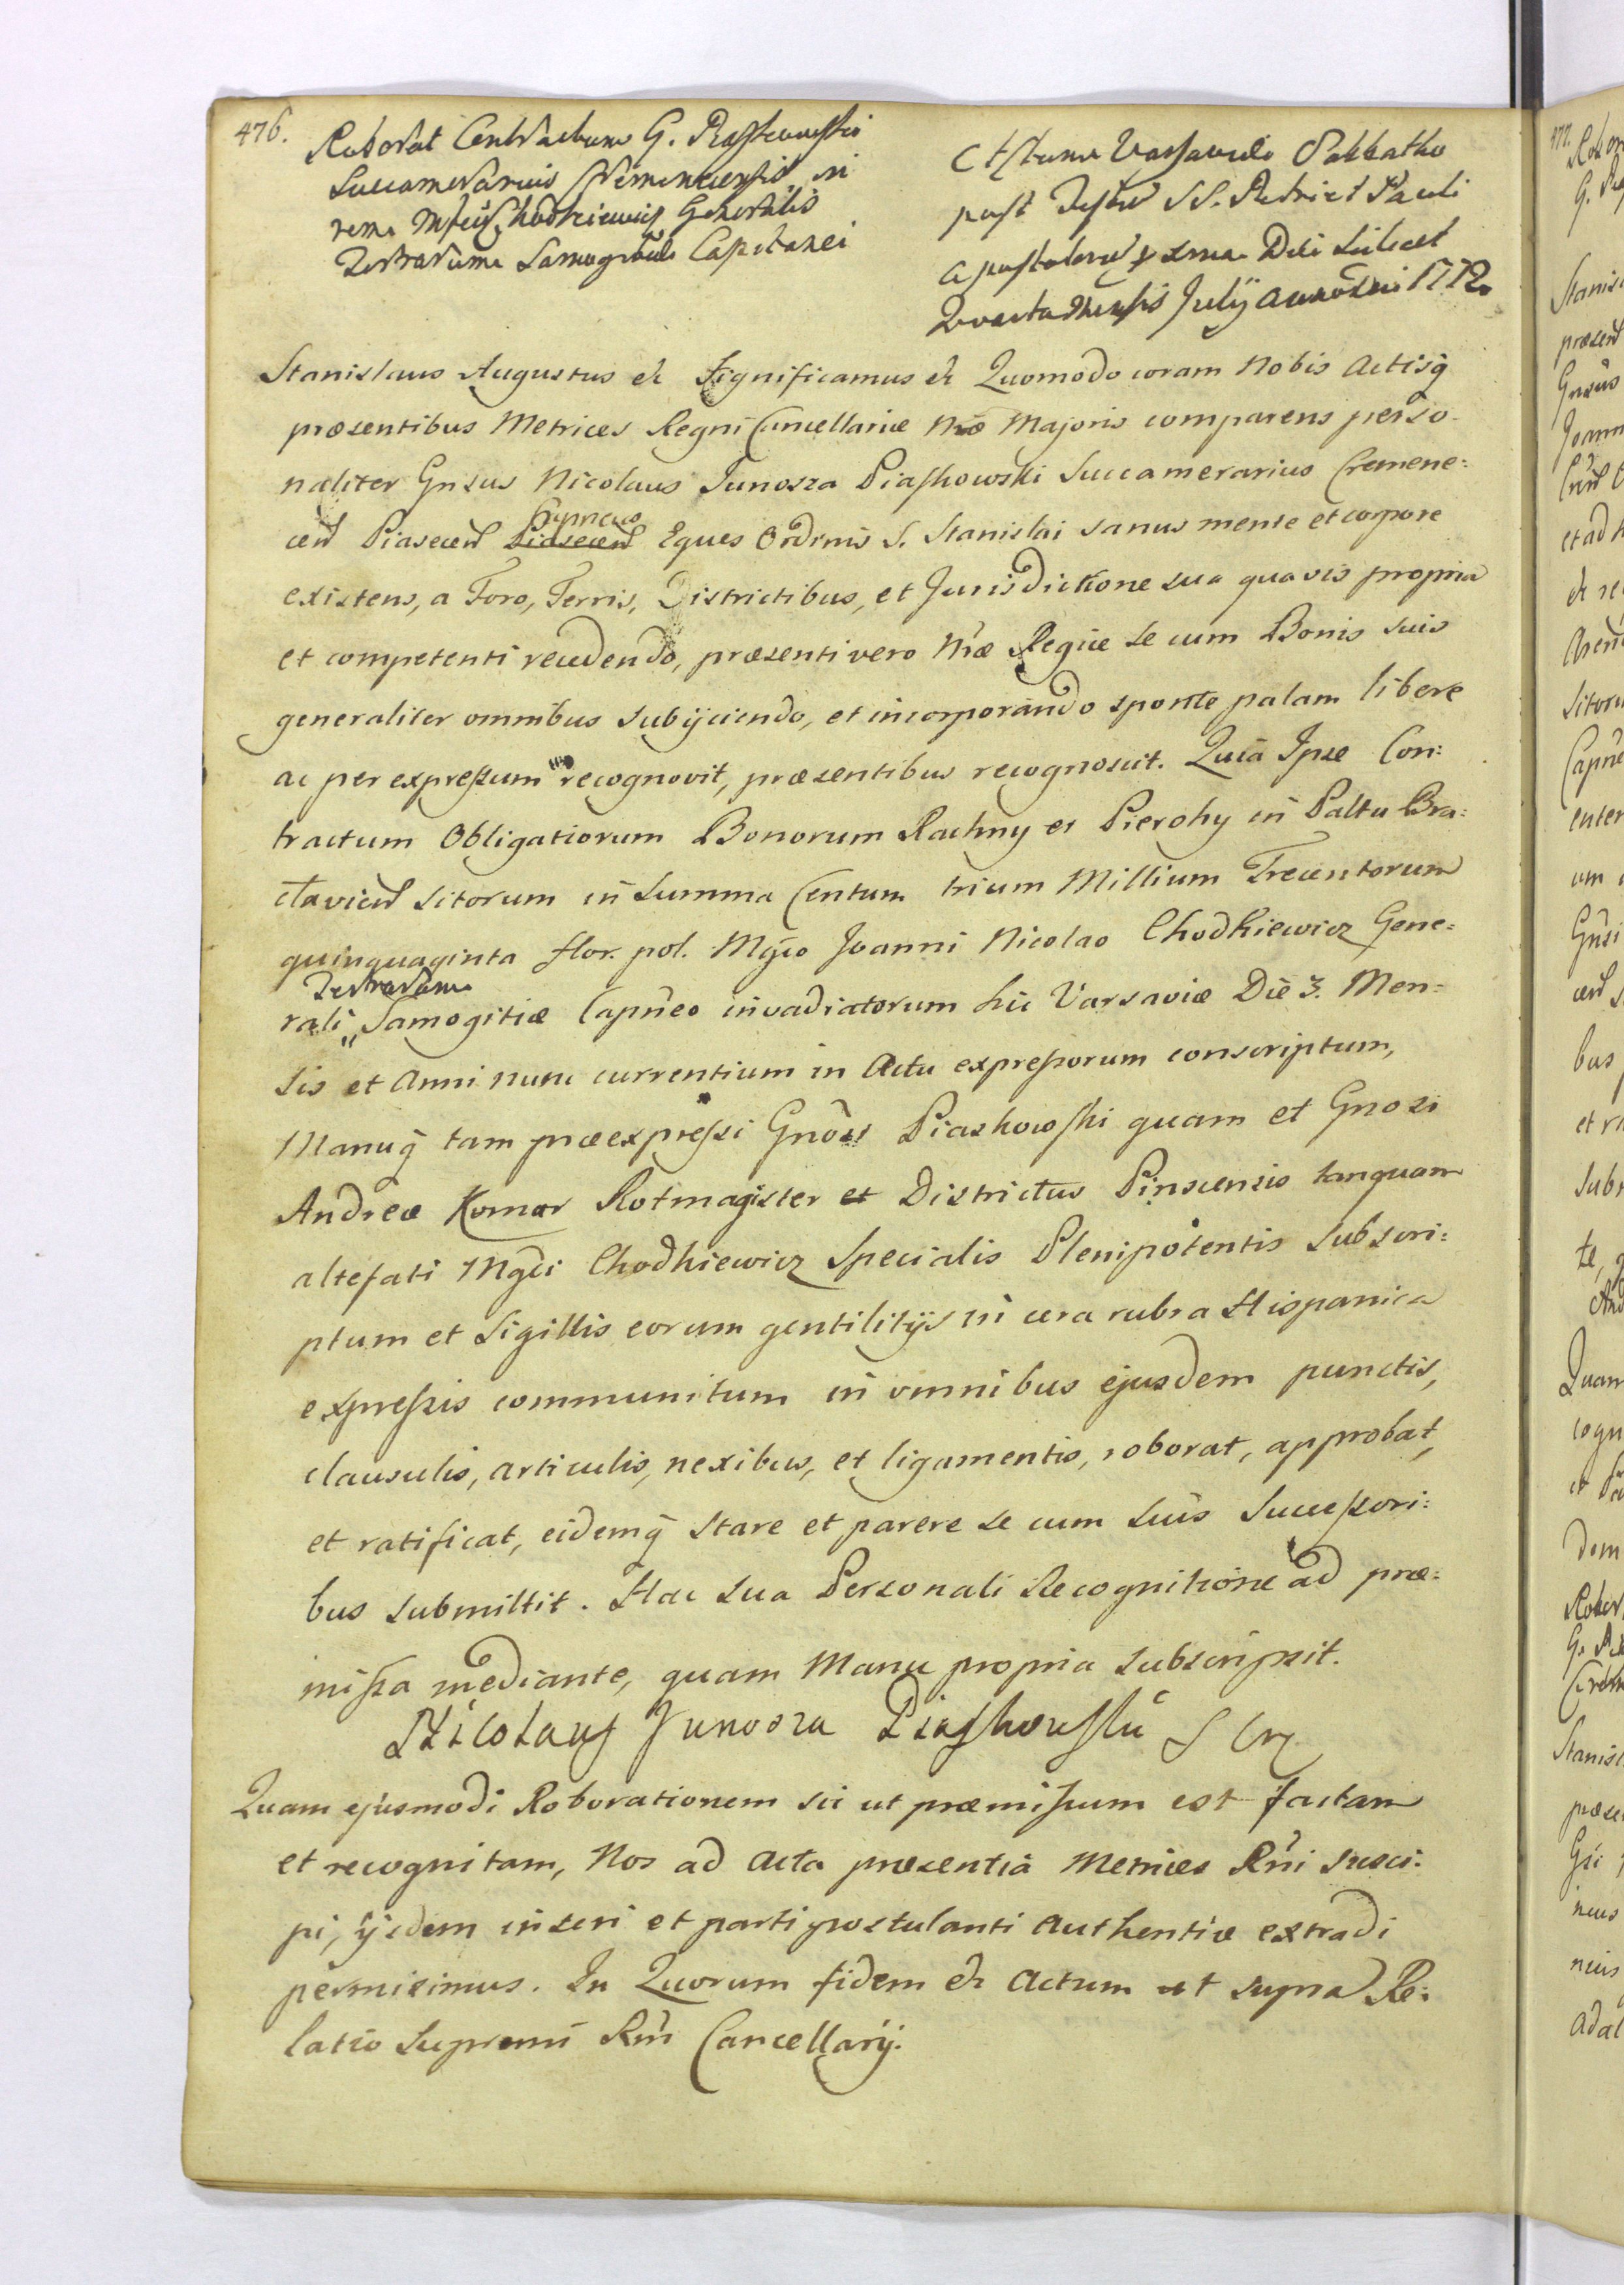 476.
Roborat Contractum G. Piaskowski
Succamerarius Cremenecensis in
rem Mfci Chodkiewicz Generalis
Terrarum Samogitiae Capitanei
Actum Varsaviae Sabbatho
post Festum SS. Petri et Pauli
Apostolorum pxma Die scilicet
Quarta Mensis Julij Anno Dni 1772.
Stanislaus Augustus &c Significamus &c Quomodo coram Nobis Actisq̃
præsentibus Metrices Regni Cancellariæ Nræ Majoris comparens perso-
naliter Gnsus Nicolaus Junosza Piaskowski Succamerarius Cremene:
cen Piasecen Capneus Eques Ordinis S. Stanislai sanus mente et corpore
existens, a Foro, Terris, Districtibus, et Jurisdictione sua quavis propria
et competenti recedendo, præsenti vero Nræ Regiæ se cum Bonis suis
generaliter omnibus subijciendo, et incorporando sponte palam libere
ac per expreſsum recognovit, præsentibus recognoscit. Quia Ipse Con:
tractum Obligatiorum Bonorum Rachny et Pierohy in Paltu Bra:
clavien sitorum in Summa Centum trium Millium Trecentorum
quinquaginta flor. pol. Mgco Joanni Nicolao Chodkiewicz Gene=
Terrarum
rali „ Samogitiæ Capneo invadiatorum hic Varsaviæ Die 3. Men=
sis et Anni nunc currentium in Actu expreſsorum conscriptum,
Manuq̃ tam præexpreſsi Gnosi Piaskowski quam et Gnosi
Andreæ Komar Rotmagister et Districtus Pinscensis tanquam
altefati Mgci Chodkiewicz Specialis Plenipotentis subscri:
ptum et Sigillis eorum gentilitijs in cera rubra Hispanica
expreſsis communitum in omnibus ejusdem punctis,
clausulis, articulis, nexibus, et ligamentis, roborat, approbat,
et ratificat, eidemq̃ stare et parere se cum suis Succeſsori:
bus submittit. Hac sua Personali Recognitione ad præ:
miſsa mediante, quam Manu propria subscripsit.
Nicolaus Junosza Piaskowski S Crz
Quam ejusmodi Roborationem sic ut præmiſsum est factam
et recognitam, Nos ad Acta præsentia Metrices Rñi susci:
pi, ijsdem inseri et parti postulanti Authentice extradi
permisimus. In Quorum fidem &c Actum ut supra Re:
latio Supremi Rñi Cancellarij.